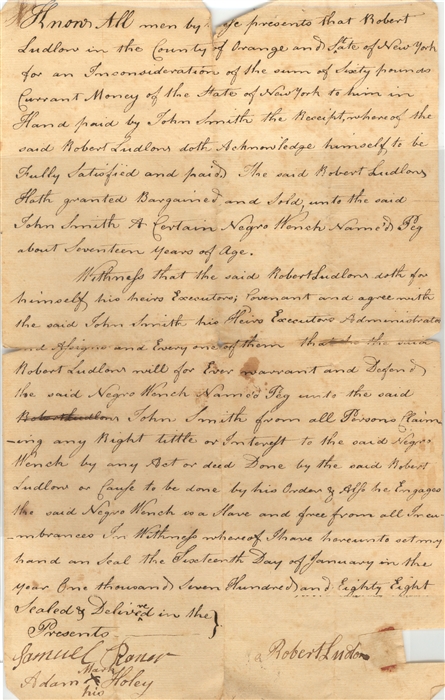 Know All men by these presents that Robert
Ludlow in the County of Orange and State of New York
for an Inconsideration of the sum of Sixty pounds
Currant Money of the State of New York to him in
Hand paid by John Smith the Receipt, whereof the
said Robert Ludlow doth Acknowledge himself to be
Fully Satisfied and paid, The said Robert Ludlow
Hath granted Bargained and Sold, unto the said
John Smith A Certain Negro Wench Named Peg
about Seventeen Years of Age.
Withness that the said Robert Ludlow doth for
himself his heirs Executors; Covenant and agree with
the said John Smith his Heirs Executors Administrator
and Assigns and Every one of them that the said
Robert Ludlow will for Ever warrant and Defend
the said Negro Wench Named Peg unto the said
Robert Ludlow John Smith from all Persons Claim
-ing any Right tittle or Interest to the said Negro
Wench by any Act or deed Done by the said Robert
Ludlow or Cause to be done by his Order & Also he Engages
the said Negro Wench is a Slave and free from all Incu
-mbrances In Withness whereof I have hereunto set my
hand an Seal the Sixteenth Day of January in the
year One thousand Seven Hundred and Eighty Eight
Sealed & Delivered in the }
Presents
Samuel
Mark
Adam X Holey
his
Robert Ludlow